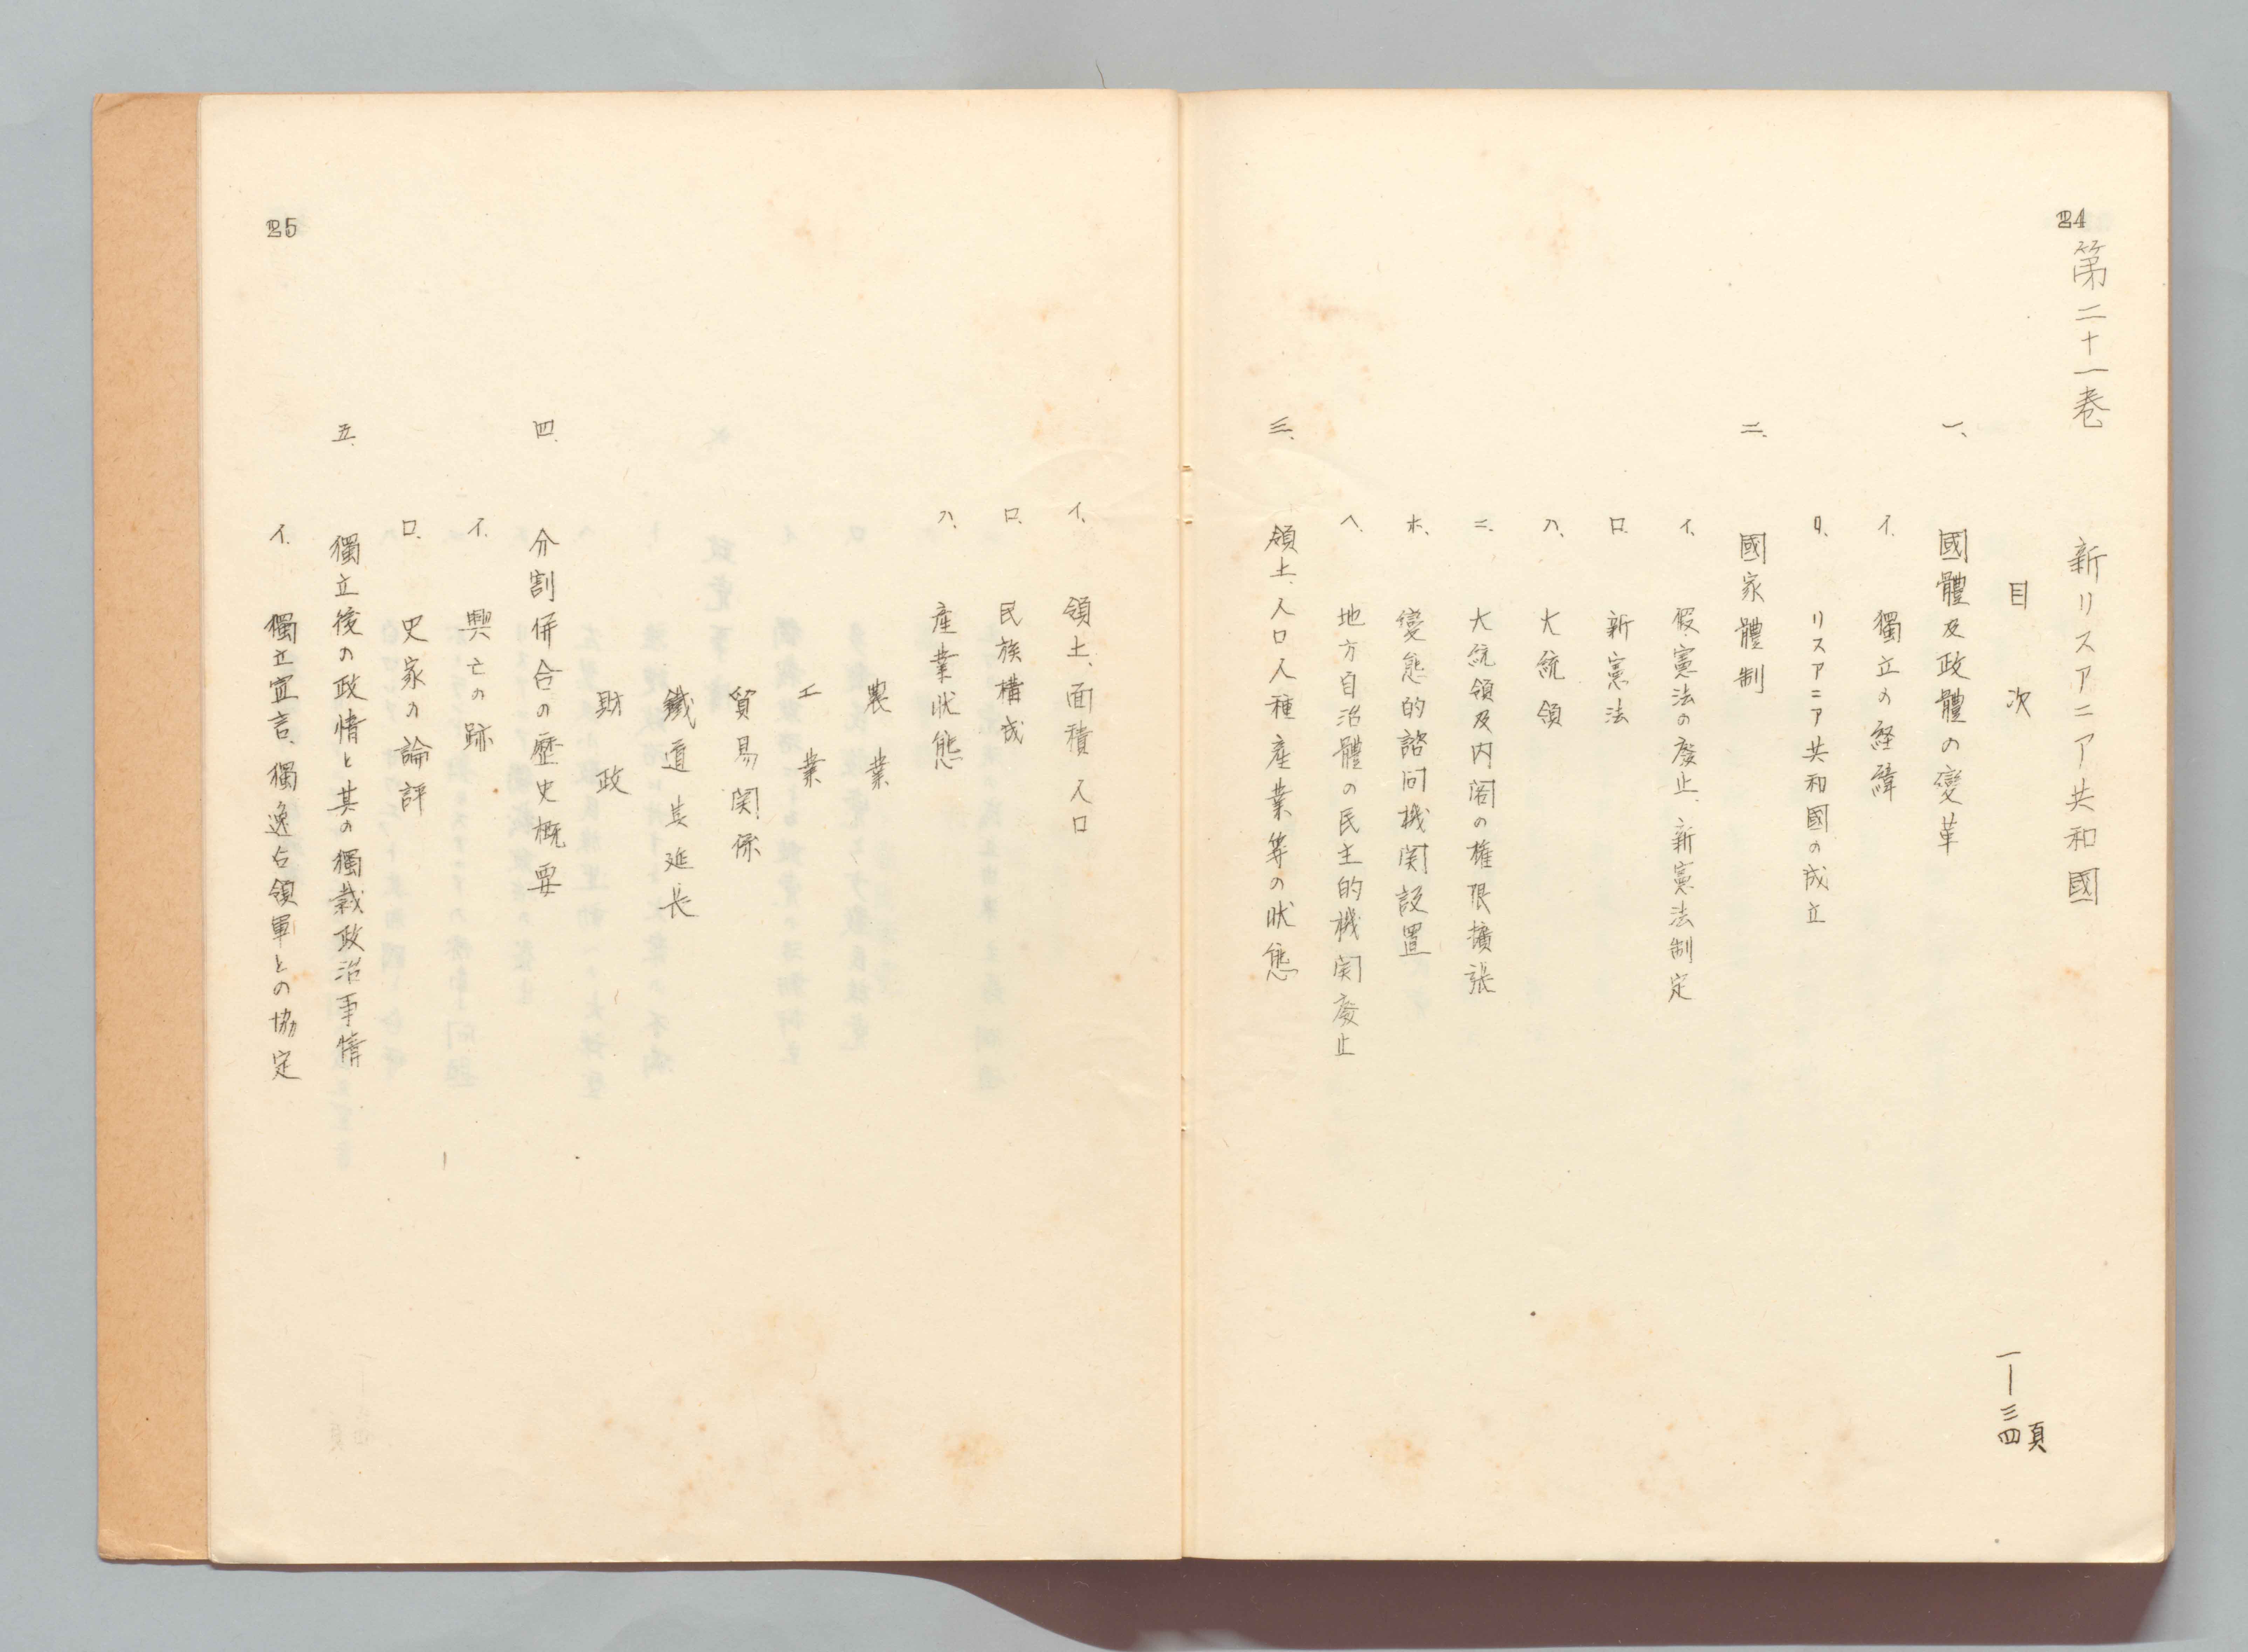 84
第二十一巻　新リスアニア共和國
目次　一―三四頁
一、國體及政體の變革
イ、獨立の経緯
ロ、リスアニア共和國の成立
二、國家體制
イ、假憲法の廢止、新憲法制定
ロ、新憲法
ハ、大統領
ニ、大統領及内閣の権限擴張
ホ、變態的諮问機関設置
ヘ、地方自治體の民主的機関廢止
三、領土、人口人種産業等の状態
85
イ、領土、面積人口
ロ、民族構成
ハ、産業状態
農業
工業
貿易関係
鐵道其延長
財政
四、分割併合の歴史概要
イ、興亡の跡
ロ、史家の論評
五、獨立後の政情と其の獨裁政治事情
イ、獨立宣言、獨逸占領軍との協定